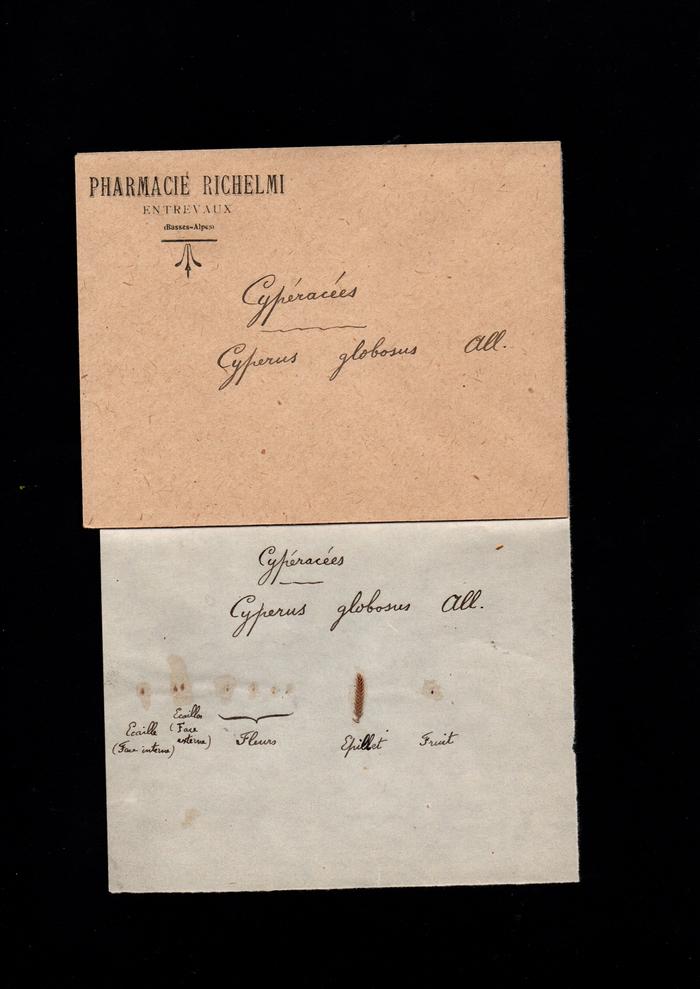 PHARMACIE RICHELMI
ENTREVAUX
(Basses-Alpes)
Cypéracées
Cyperus globosus All.
Cypéracées
Cyperus globosus All.
Ecaille
(Face interne)
Ecailles
(Face
externe)
Fleurs
Epillet
Fruit